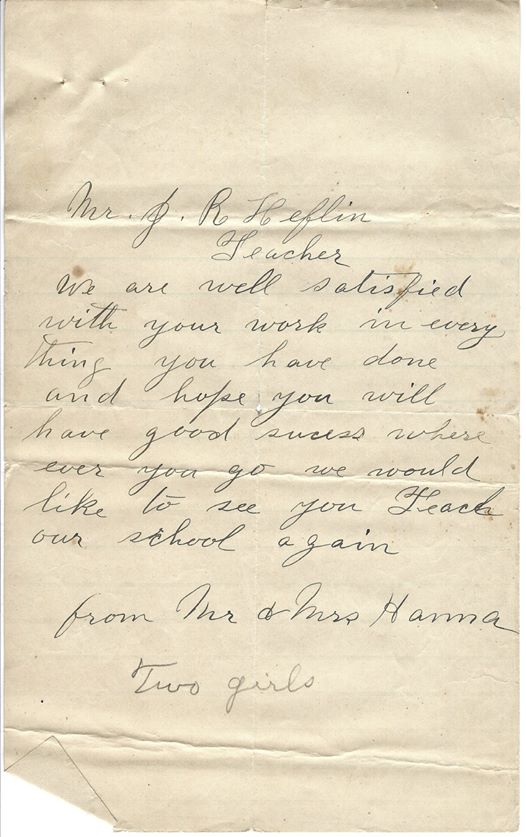 Mr. J. R Heflin
Teacher
We are well satisfied
with your work in every
thing you have done
and hope you will
have good sucess where
ever you go we would
like to see you Teach
our school again
from Mr & Mrs Hanna
Two girls